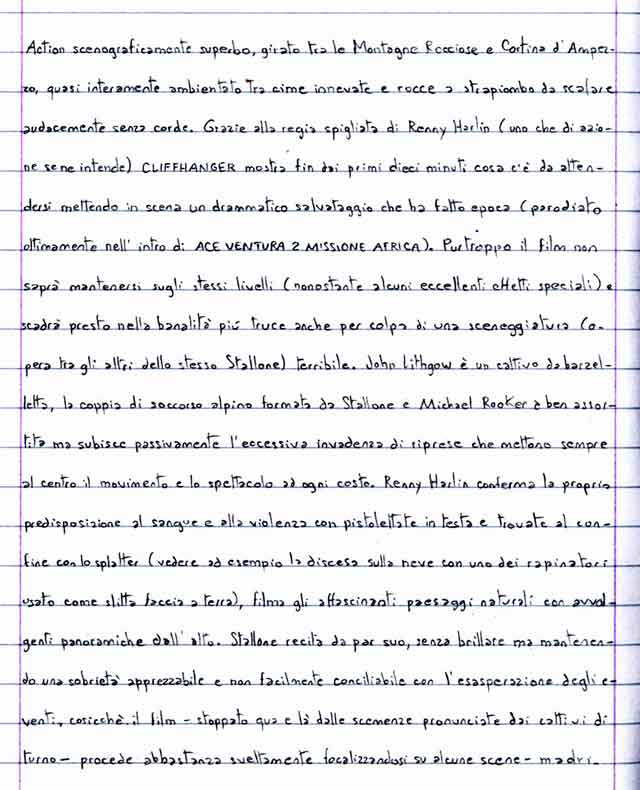 Action scenograficamente superbo, girato tra le Montagne Rocciose e Cortina d'Ampez-
zo, quasi interamente ambientato tra cime innevate e rocce a strapiombo da scalare
audacemente senza corde. Grazie alla regia spigliata di Renny Harlin (uno che di azio-
ne se ne intende) CLIFFHANGER mostra fin dai primi dieci minuti cosa c'è da atten-
dersi mettendo in scena un drammatico salvataggio che ha fatto epoca (parodiato
ottimamente nell'intro di ACE VENTURA 2 MISSIONE AFRICA). Purtroppo il film non
saprà mantenersi sugli stessi livelli (nonostante alcuni eccellenti effetti speciali) e
scadrà presto nella banalità più truce anche per colpa di una sceneggiatura (o-
pera tra gli altri dello stesso Stallone) terribile. John Lithgow è un cattivo da barzel-
letta, la coppia di soccorso alpino formata da Stallone e Michael Rooker è ben assor-
tita ma subisce passivamente l'eccessiva invadenza di riprese che mettono sempre
al centro il movimento e lo spettacolo ad ogni costo. Renny Harlin conferma la propria
predisposizione al sangue e alla violenza con pistolettate in testa e trovate al con-
fine con lo splatter (vedere ad esempio la discesa sulla neve con uno dei rapinatori
usato come slitta faccia a terra), filma gli affascinanti paesaggi naturali con avvol-
genti panoramiche dall'alto. Stallone recita da par suo, senza brillare ma mantenen-
do una sobrietà apprezzabile e non facilmente conciliabile con l'esasperazione degli e-
venti, cosicchè il film - stoppato qua e là dalle scemenze pronunciate dai cattivi di
turno - procede abbastanza sveltamente focalizzandosi su alcune scene-madri.